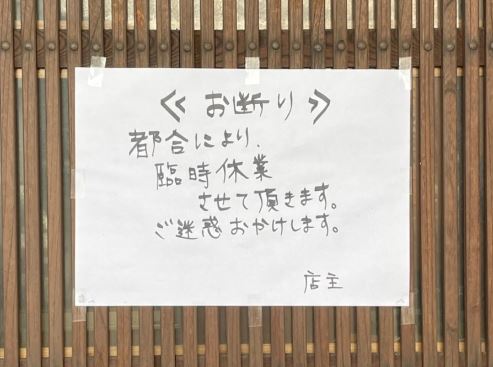 ≪お断り≫
都合により、
臨時休業
させて頂きます。
ご迷惑おかけします。
店主